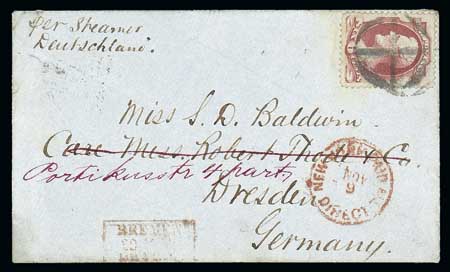 per Steamer
Deutschland.
Miss S. D. Baldwin
Care Mess. Robert Thode & Co.
Portikusstr 4 part,
Dresden
Germany.
NEW
NOV
9
DIRECT
BREMEN